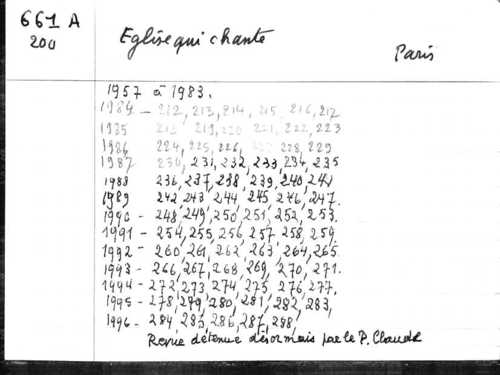 661 A
200
Eglise qui chante
Paris
1957 à 1983.
1984 - 212, 213, 214, 215, 216, 217
1985 218 219, 220 221, 222, 223
1986 224, 225, 226, 228, 229
1987 230, 231, 232, 233, 234, 235
1988 236, 237, 238, 239, 240, 241
1989 242, 243, 244, 245, 246, 247.
1990 - 248, 249, 250, 251, 252, 253.
1991 - 254, 255, 256, 257, 258, 259.
1992 - 260, 261, 262, 263, 264, 265.
1993 - 266, 267, 268, 269, 270, 271.
1994 - 272, 273, 274, 275, 276, 277,
1995 - 278, 279, 280, 281, 282, 283,
1996 - 284, 285, 286, 287, 288,
Revue détenue désormais par le P. Claude